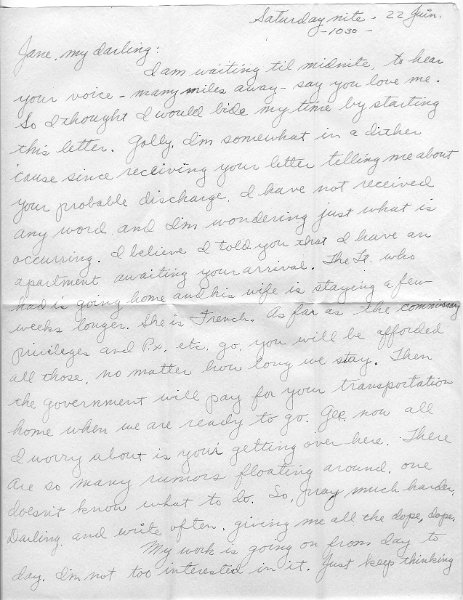 Saturday nite - 22 Juin.
-1030-
Jane, my darling:
I am waiting til midnite, to hear
your voice - many miles away - say you love me.
So I thought I would bide my time by starting
this letter. Golly, I'm somewhat in a dither
'cause since receiving your letter telling me about
your probable discharge, I have not received
any word and I'm wondering just what is
occurring. I believe I told you that I have an
apartment awaiting your arrival. The Lt. who
had is going home and his wife is staying a few
weeks longer. She is French. As far as the commissary
privileges and P.x. etc. go, you will be afforded
all those, no matter how long we stay. Then
the government will pay for your transportation
home when we are ready to go. Gee now all
I worry about is your getting over here. There
are so many rumors floating around, one
doesn't know what to do. So, pray much harder,
Darling and write often, giving me all the dope, dope.
My work is going on from day to
day. I'm not too interested in it. Just keep thinking